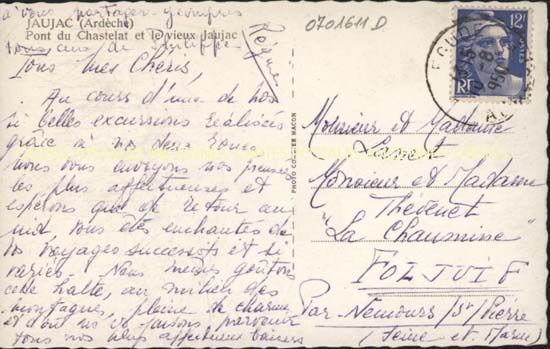 à vous partager y compris
JAUJAC (Ardèche)
Pont du Chastelat et le vieux Jaujac
tous ceux de
Régine
0701611 D
12F
RF
Tous mes Chéris,
Au cours d'une de nos
si belles excursions réalisées
grâce à nos deux roues
nous vous envoyons nos pensées
les plus affectueuses et
espérons que de retour au
nid, vous êtes enchantés de
vos voyages successifs et si
variés. Nous mêmes goûtons
cette halte, au milieu des
montagnes, pleine de charme
et dont ns ne saurions
Tous nos plus affectueux baisers
PHOTO COMBIER MACON
Monsieur et Madame
Monsieur et Madame
Thévenet
"La Chaumine"
FOLJUIF
Par Nemours/St Pierre
(Seine et Marne)